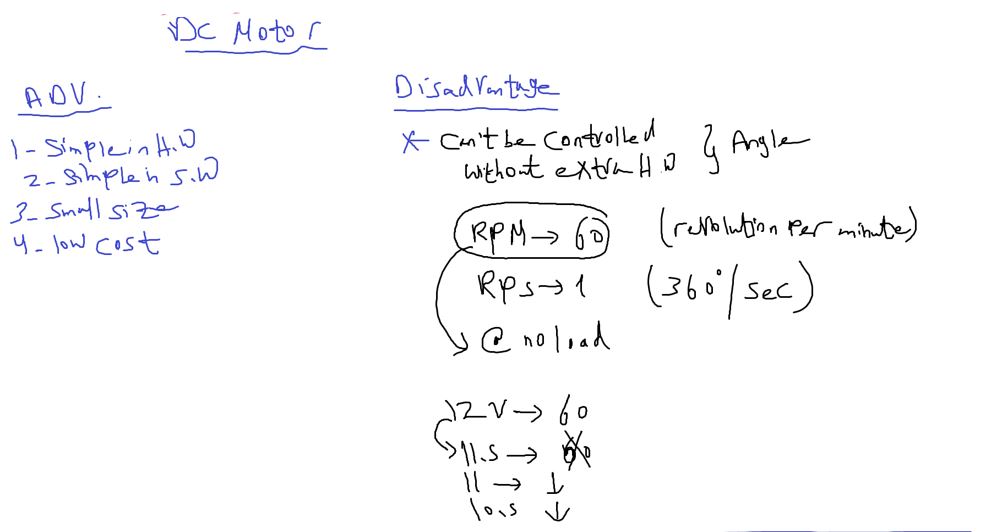 DC Motor
ADV.
1- Simple in H.W
2- Simple in S.W
3- Small size
4- low cost
Disadvantage
* Can't be Controlled } Angle
without extra H.W
RPM → 60 (revolution per minute)
RPS → 1 (360°/sec)
@ no load
12V → 60
11.5 → 60
11 → ↓
10.5 ↓